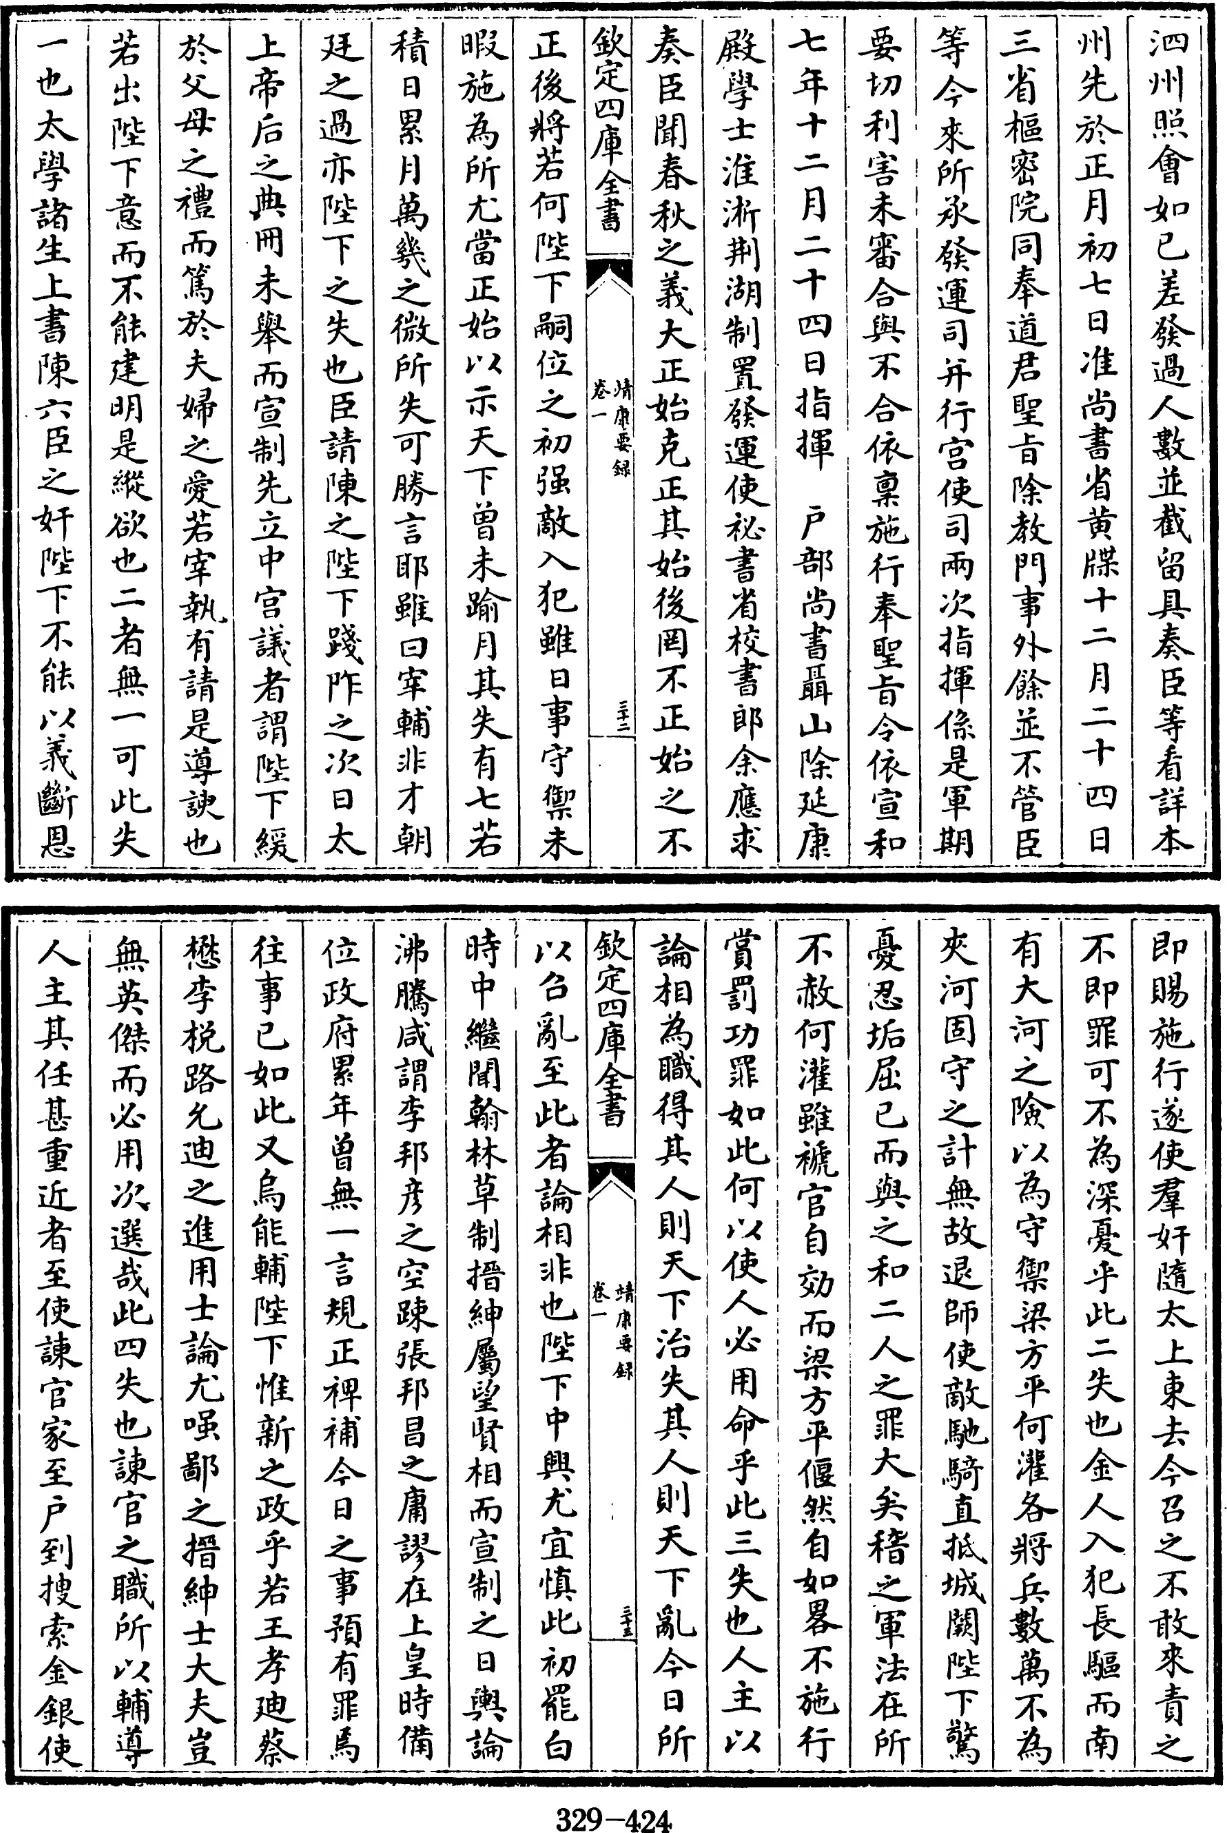 泗州照會如已差發過人數並截留具奏臣等看詳本
州先於正月初七日准尚書省黃牒十二月二十四日
三省樞密院同奉道君聖旨除教門事外餘並不管臣
等今來所承發運司并行宮使司兩次指揮係是軍期
要切利害未審合與不合依稟施行奉聖旨令依宣和
七年十二月二十四日指揮　戶部尚書聶山除延康
殿學士淮淅荆湖制置發運使祕書省校書郎余應求
奏臣聞春秋之義大正始克正其始後罔不正始之不
欽定四庫全書
靖康要録
卷一
三十二
正後將若何陛下嗣位之初强敵入犯雖日事守禦未
暇施為所尤當正始以示天下曾未踰月其失有七若
積日累月萬幾之微所失可勝言耶雖曰宰輔非才朝
廷之過亦陛下之失也臣請陳之陛下踐阼之次日太
上帝后之典冊未舉而宣制先立中宮議者謂陛下緩
於父母之禮而篤於夫婦之愛若宰執有請是導諛也
若出陛下意而不能建明是縱欲也二者無一可此失
一也太學諸生上書陳六臣之奸陛下不能以義斷恩
即賜施行遂使羣奸隨太上東去今召之不敢來責之
不即罪可不為深憂乎此二失也金人入犯長驅而南
有大河之險以為守禦梁方平何灌各將兵數萬不為
夾河固守之計無故退師使敵馳騎直抵城闕陛下驚
憂忍垢屈已而與之和二人之罪大矣稽之軍法在所
不赦何灌雖褫官自効而梁方平偃然自如畧不施行
賞罰功罪如此何以使人必用命乎此三失也人主以
論相為職得其人則天下治失其人則天下亂今日所
欽定四庫全書
靖康要録
卷一
三十三
以召亂至此者論相非也陛下中興尤宜慎此初罷白
時中繼聞翰林草制搢紳屬望賢相而宣制之日輿論
沸騰咸謂李邦彦之空踈張邦昌之庸謬在上皇時備
位政府累年曾無一言規正裨補今日之事預有罪焉
往事已如此又烏能輔陛下惟新之政乎若王孝迪蔡
懋李梲路允迪之進用士論尤嗤鄙之搢紳士大夫豈
無英傑而必用次選哉此四失也諫官之職所以輔導
人主其任甚重近者至使諫官家至戶到搜索金銀使
329-424